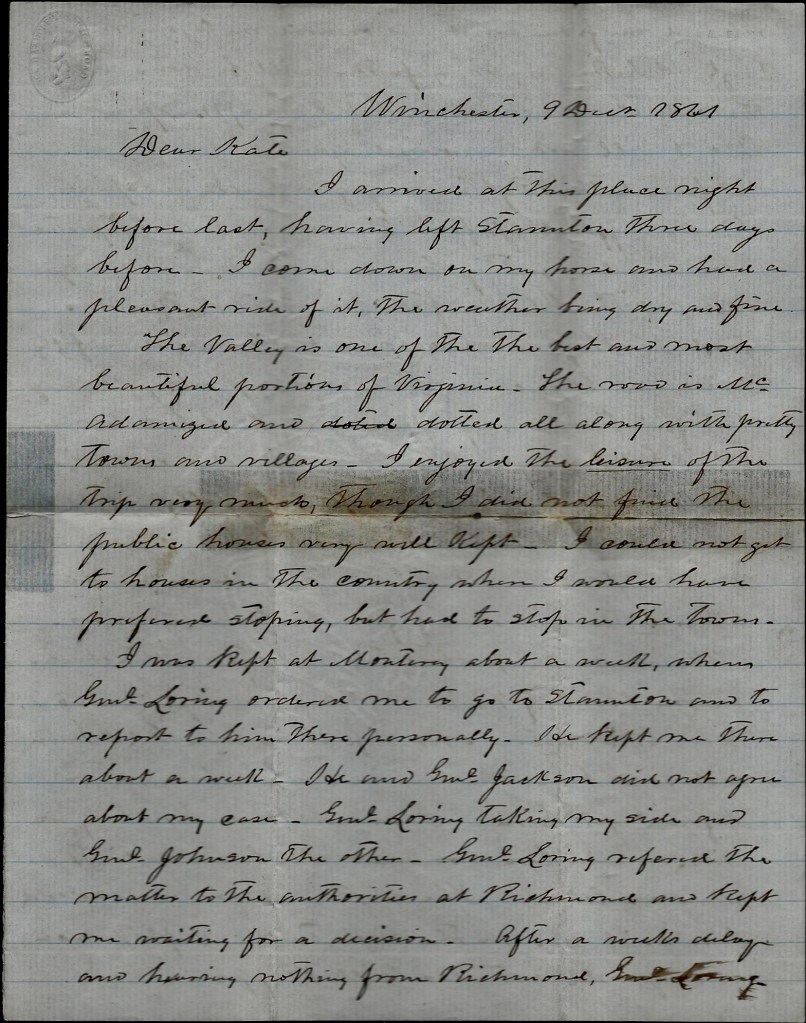 Winchester, 9 Decr 1861
Dear Kate
I arrived at this place night
before last, having left Staunton three days
before - I come down on my horse and had a
pleasant ride of it, the weather being dry and fine.
The Valley is one of the the best and most
beautiful portions of Virginia - The road is Mc
Adamized and doted dotted all along with pretty
towns and villages - I enjoyed the leisure of the
trip very much, though I did not find the
public houses very well kept - I could not get
to houses in the country where I would have
prefered stoping, but had to stop in the towns -
I was kept at Monterey about a week, when
Genl. Loring ordered me to go to Staunton and to
report to him there personally - He kept me there
about a week - He and Genl. Jackson did not agree
about my case - Genl. Loring taking my side and
Genl. Johnson the other - Genl. Loring refered the
matter to the authorities at Richmond and kept
me waiting for a decision - After a weeks delay
and hearing nothing from Richmond, Genl. Loring